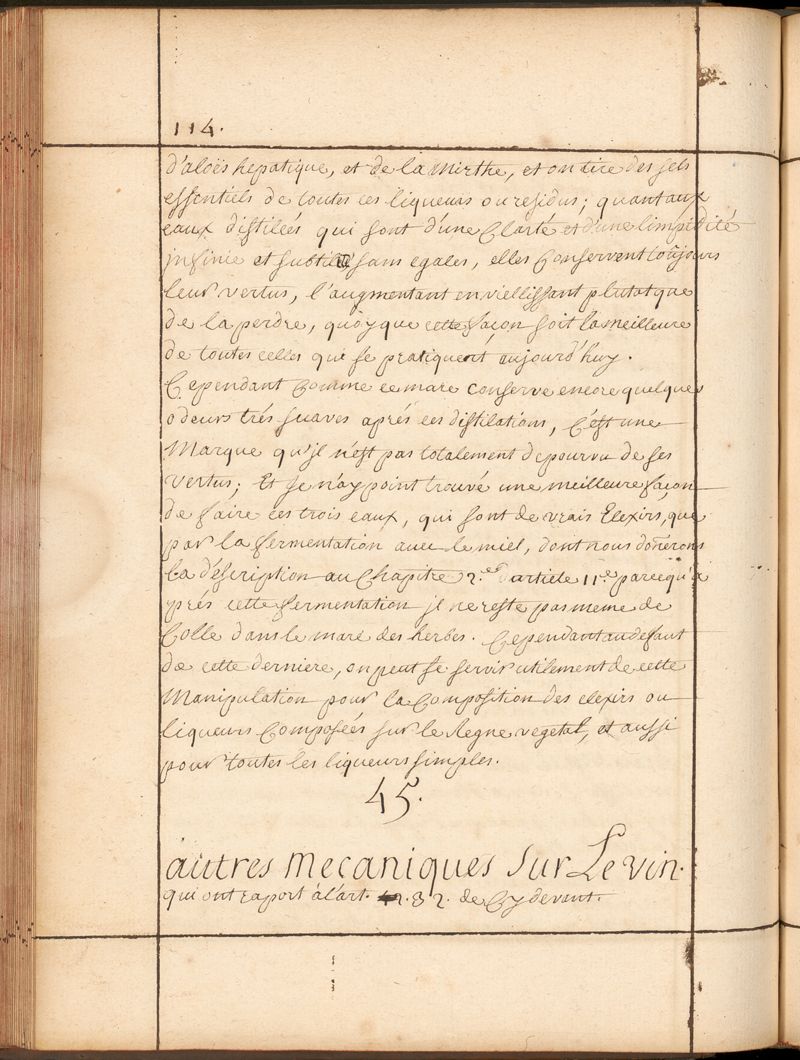 114.
d'aloës hepatique, et de la Mirthe, et on tire des sels
essentiels de toutes ces liqueurs ou residus; quant aux
eaux distilées qui sont d'une Clarté et d'une limpidité
jnfinie et subtile sans egales, elles Conservent toujours
leur vertus, l'augmentant en viellissant plutat que
de la perdre, quoyque cette façon soit la meilleure
de toutes celles qui se pratiquent aujourd'huy.
Cependant Comme ce marc conserve encore quelques
odeurs trés suaves aprés ces distilations, C'est une
Marque qu'jl n'est pas totalement depourvu de ses
vertus; Et Je n'ay point trouvé une meilleure façon
de faire ces trois eaux, qui sont de vrais Elexirs, que
par la fermentation avec le miel, dont nous donerons
la déscription au Chapitre 2.e article 11.e parcequ'a
prés cette fermentation jl ne reste pas meme de
Colle dans le marc des herbes. Cependant au defaut
de cette derniere, on peut se servir utilement de cette
Manipulation pour la Composition des elexirs ou
liqueurs Composées sur le Regne vegetal, et aussi
pour toutes les liqueurs simples.
45.
autres mecaniques sur Le vin.
qui ont raport à l'art. 32. de Cy devant.